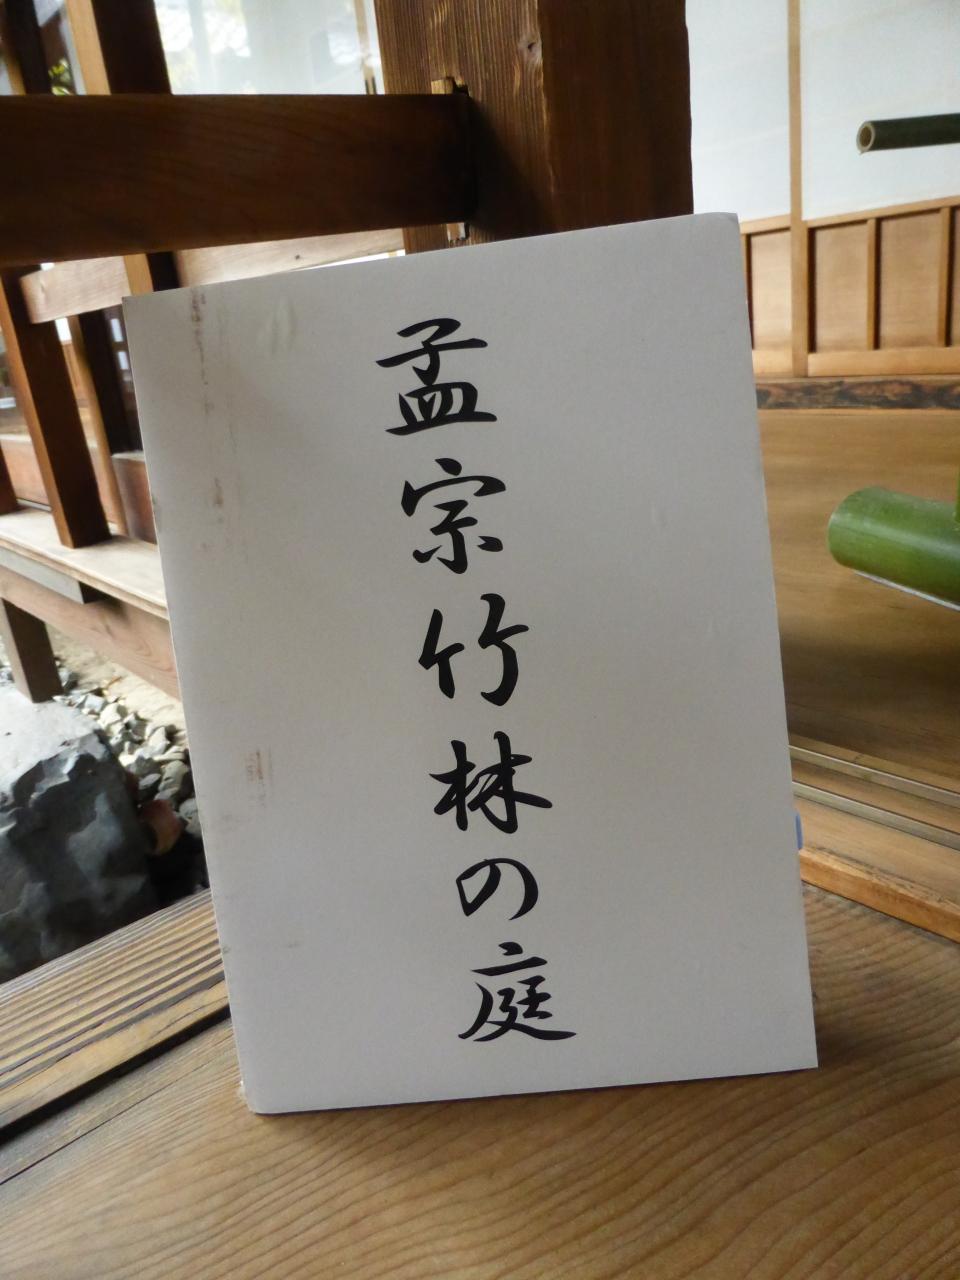 孟宗竹林の庭